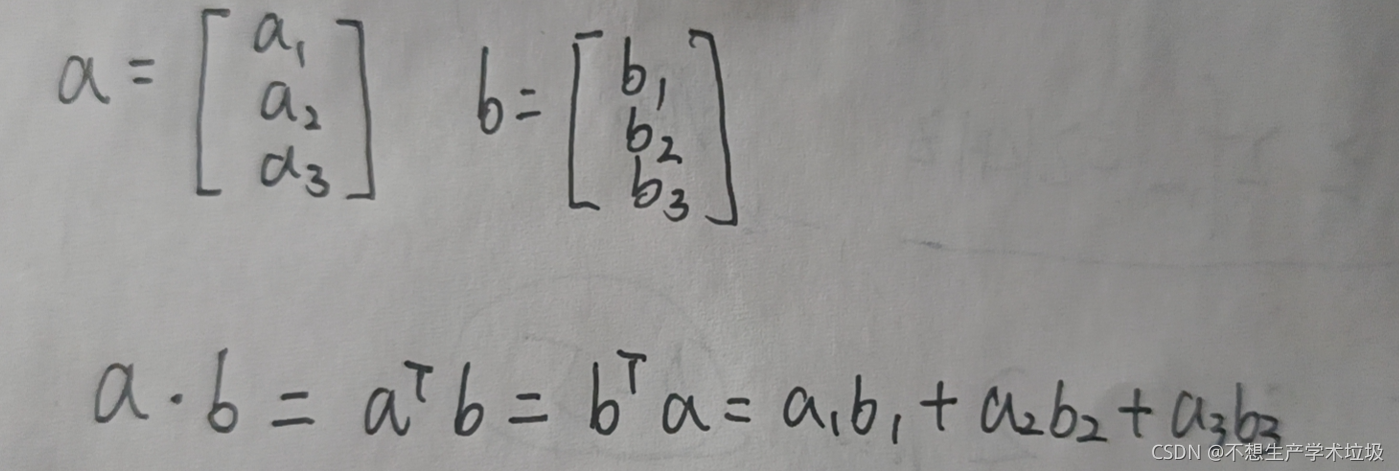 a = [a₁ a₂ a₃] b = [b₁ b₂ b₃]
a · b = aᵀ b = bᵀ a = a₁b₁ + a₂b₂ + a₃b₃
CSDN @不想生产学术垃圾